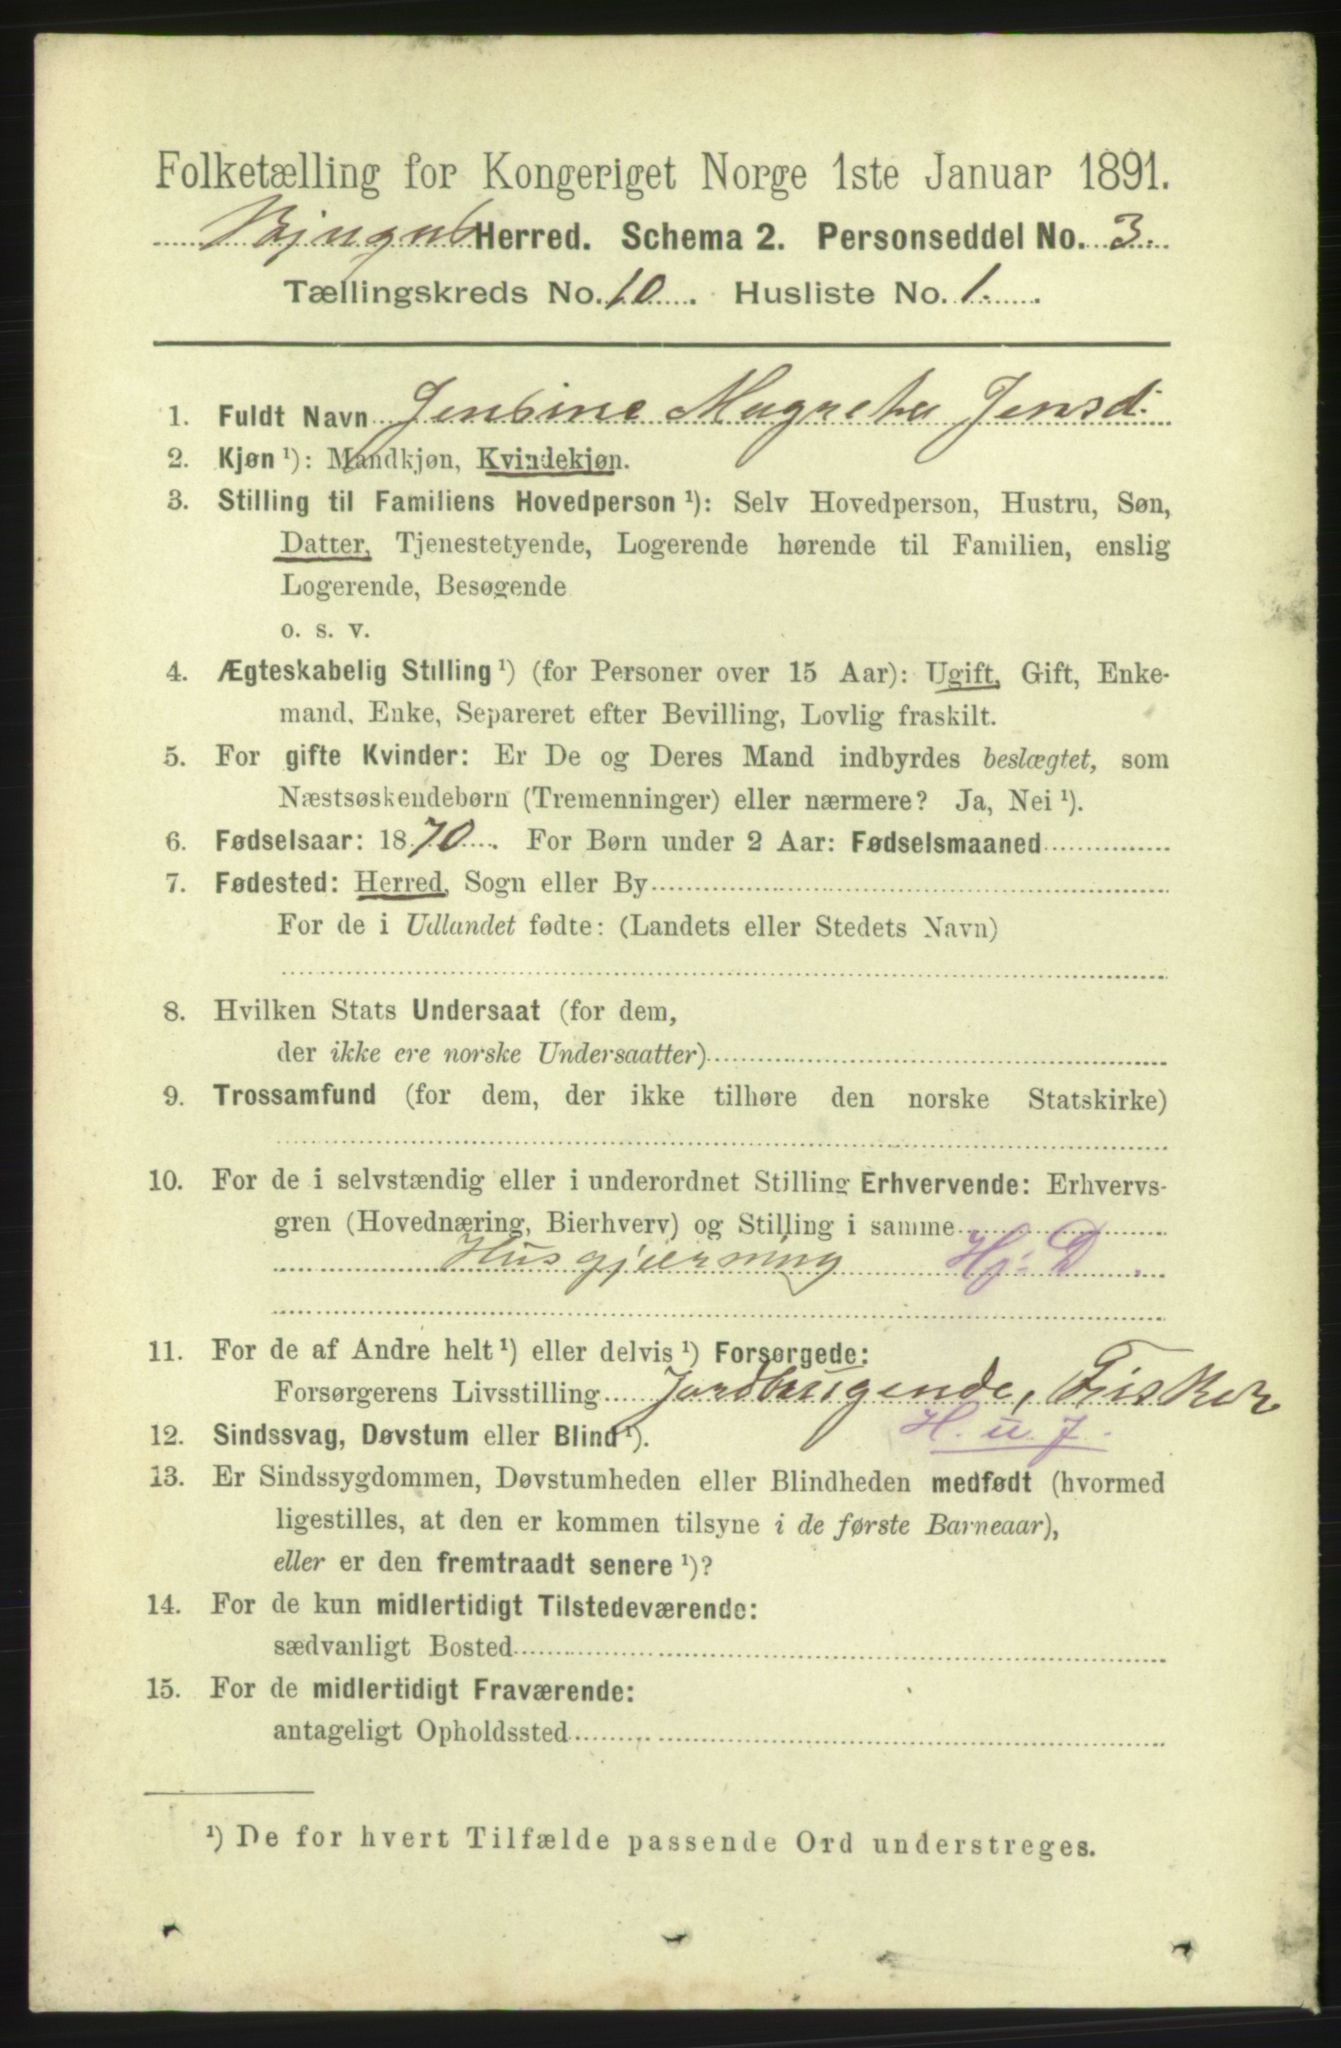 Folketælling for Kongeriget Norge 1ste Januar 1891.
Bjugns Herred. Schema 2. Personseddel No. 3.
Tællingskreds No. 10. Husliste No. 1.
1. Fuldt Navn Jensine Magreta Jensd.
2. Kjøn ¹): Mandkjøn, Kvindekjøn.
3. Stilling til Familiens Hovedperson ¹): Selv Hovedperson, Hustru, Søn,
Datter, Tjenestetyende, Logerende hørende til Familien, enslig
Logerende, Besøgende
o. s. v.
4. Ægteskabelig Stilling ¹) (for Personer over 15 Aar): Ugift, Gift, Enke-
mand, Enke, Separeret efter Bevilling, Lovlig fraskilt.
5. For gifte Kvinder: Er De og Deres Mand indbyrdes beslægtet, som
Næstsøskendebørn (Tremenninger) eller nærmere? Ja, Nei ¹).
6. Fødselsaar: 1870. For Børn under 2 Aar: Fødselsmaaned
7. Fødested: Herred, Sogn eller By
For de i Udlandet fødte: (Landets eller Stedets Navn)
8. Hvilken Stats Undersaat (for dem,
der ikke ere norske Undersaatter)
9. Trossamfund (for dem, der ikke tilhøre den norske Statskirke)
10. For de i selvstændig eller i underordnet Stilling Erhvervende: Erhvervs-
gren (Hovednæring, Bierhverv) og Stilling i samme
Husgjierning Hj: D.
11. For de af Andre helt ¹) eller delvis ¹) Forsørgede:
Forsørgerens Livsstilling Jordbrugende, Fisker
H. u. J.
12. Sindssvag, Døvstum eller Blind ¹).
13. Er Sindssygdommen, Døvstumheden eller Blindheden medfødt (hvormed
ligestilles, at den er kommen tilsyne i de første Barneaar),
eller er den fremtraadt senere ¹)?
14. For de kun midlertidigt Tilstedeværende:
sædvanligt Bosted
15. For de midlertidigt Fraværende:
antageligt Opholdssted
¹) De for hvert Tilfælde passende Ord understreges.